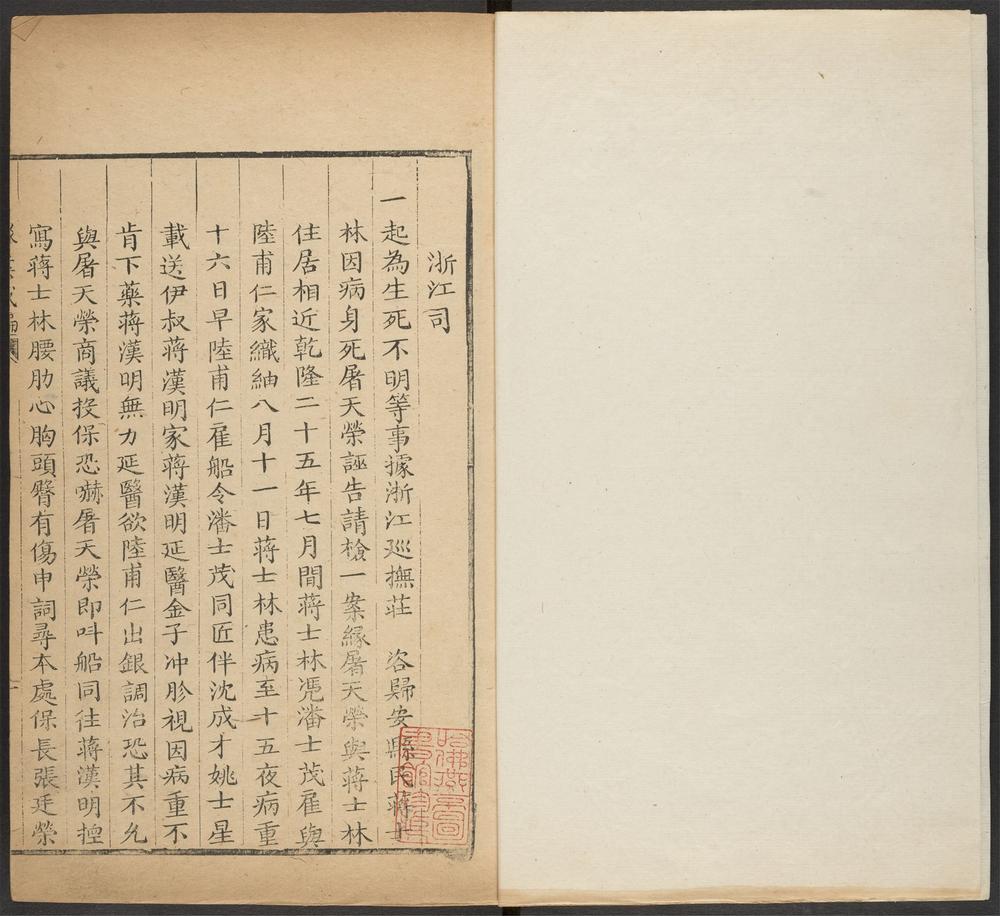 浙江司
一起為生死不明等事據浙江巡撫莊　咨歸安縣民蔣士
林因病身死屠天榮誣告請檢一案緣屠天榮與蔣士林
住居相近乾隆二十五年七月間蔣士林凴潘士茂雇與
陸甫仁家織紬八月十一日蔣士林患病至十五夜病重
十六日早陸甫仁雇船令潘士茂同匠伴沈成才姚士星
載送伊叔蔣漢明家蔣漢明延醫金子冲胗視因病重不
肯下藥蔣漢明無力延醫欲陸甫仁出銀調治恐其不允
與屠天榮商議投保恐嚇屠天榮即呌船同往蔣漢明揑
寫蔣士林腰肋心胸頭臀有傷申詞尋本處保長張廷榮
哈佛燕京圖